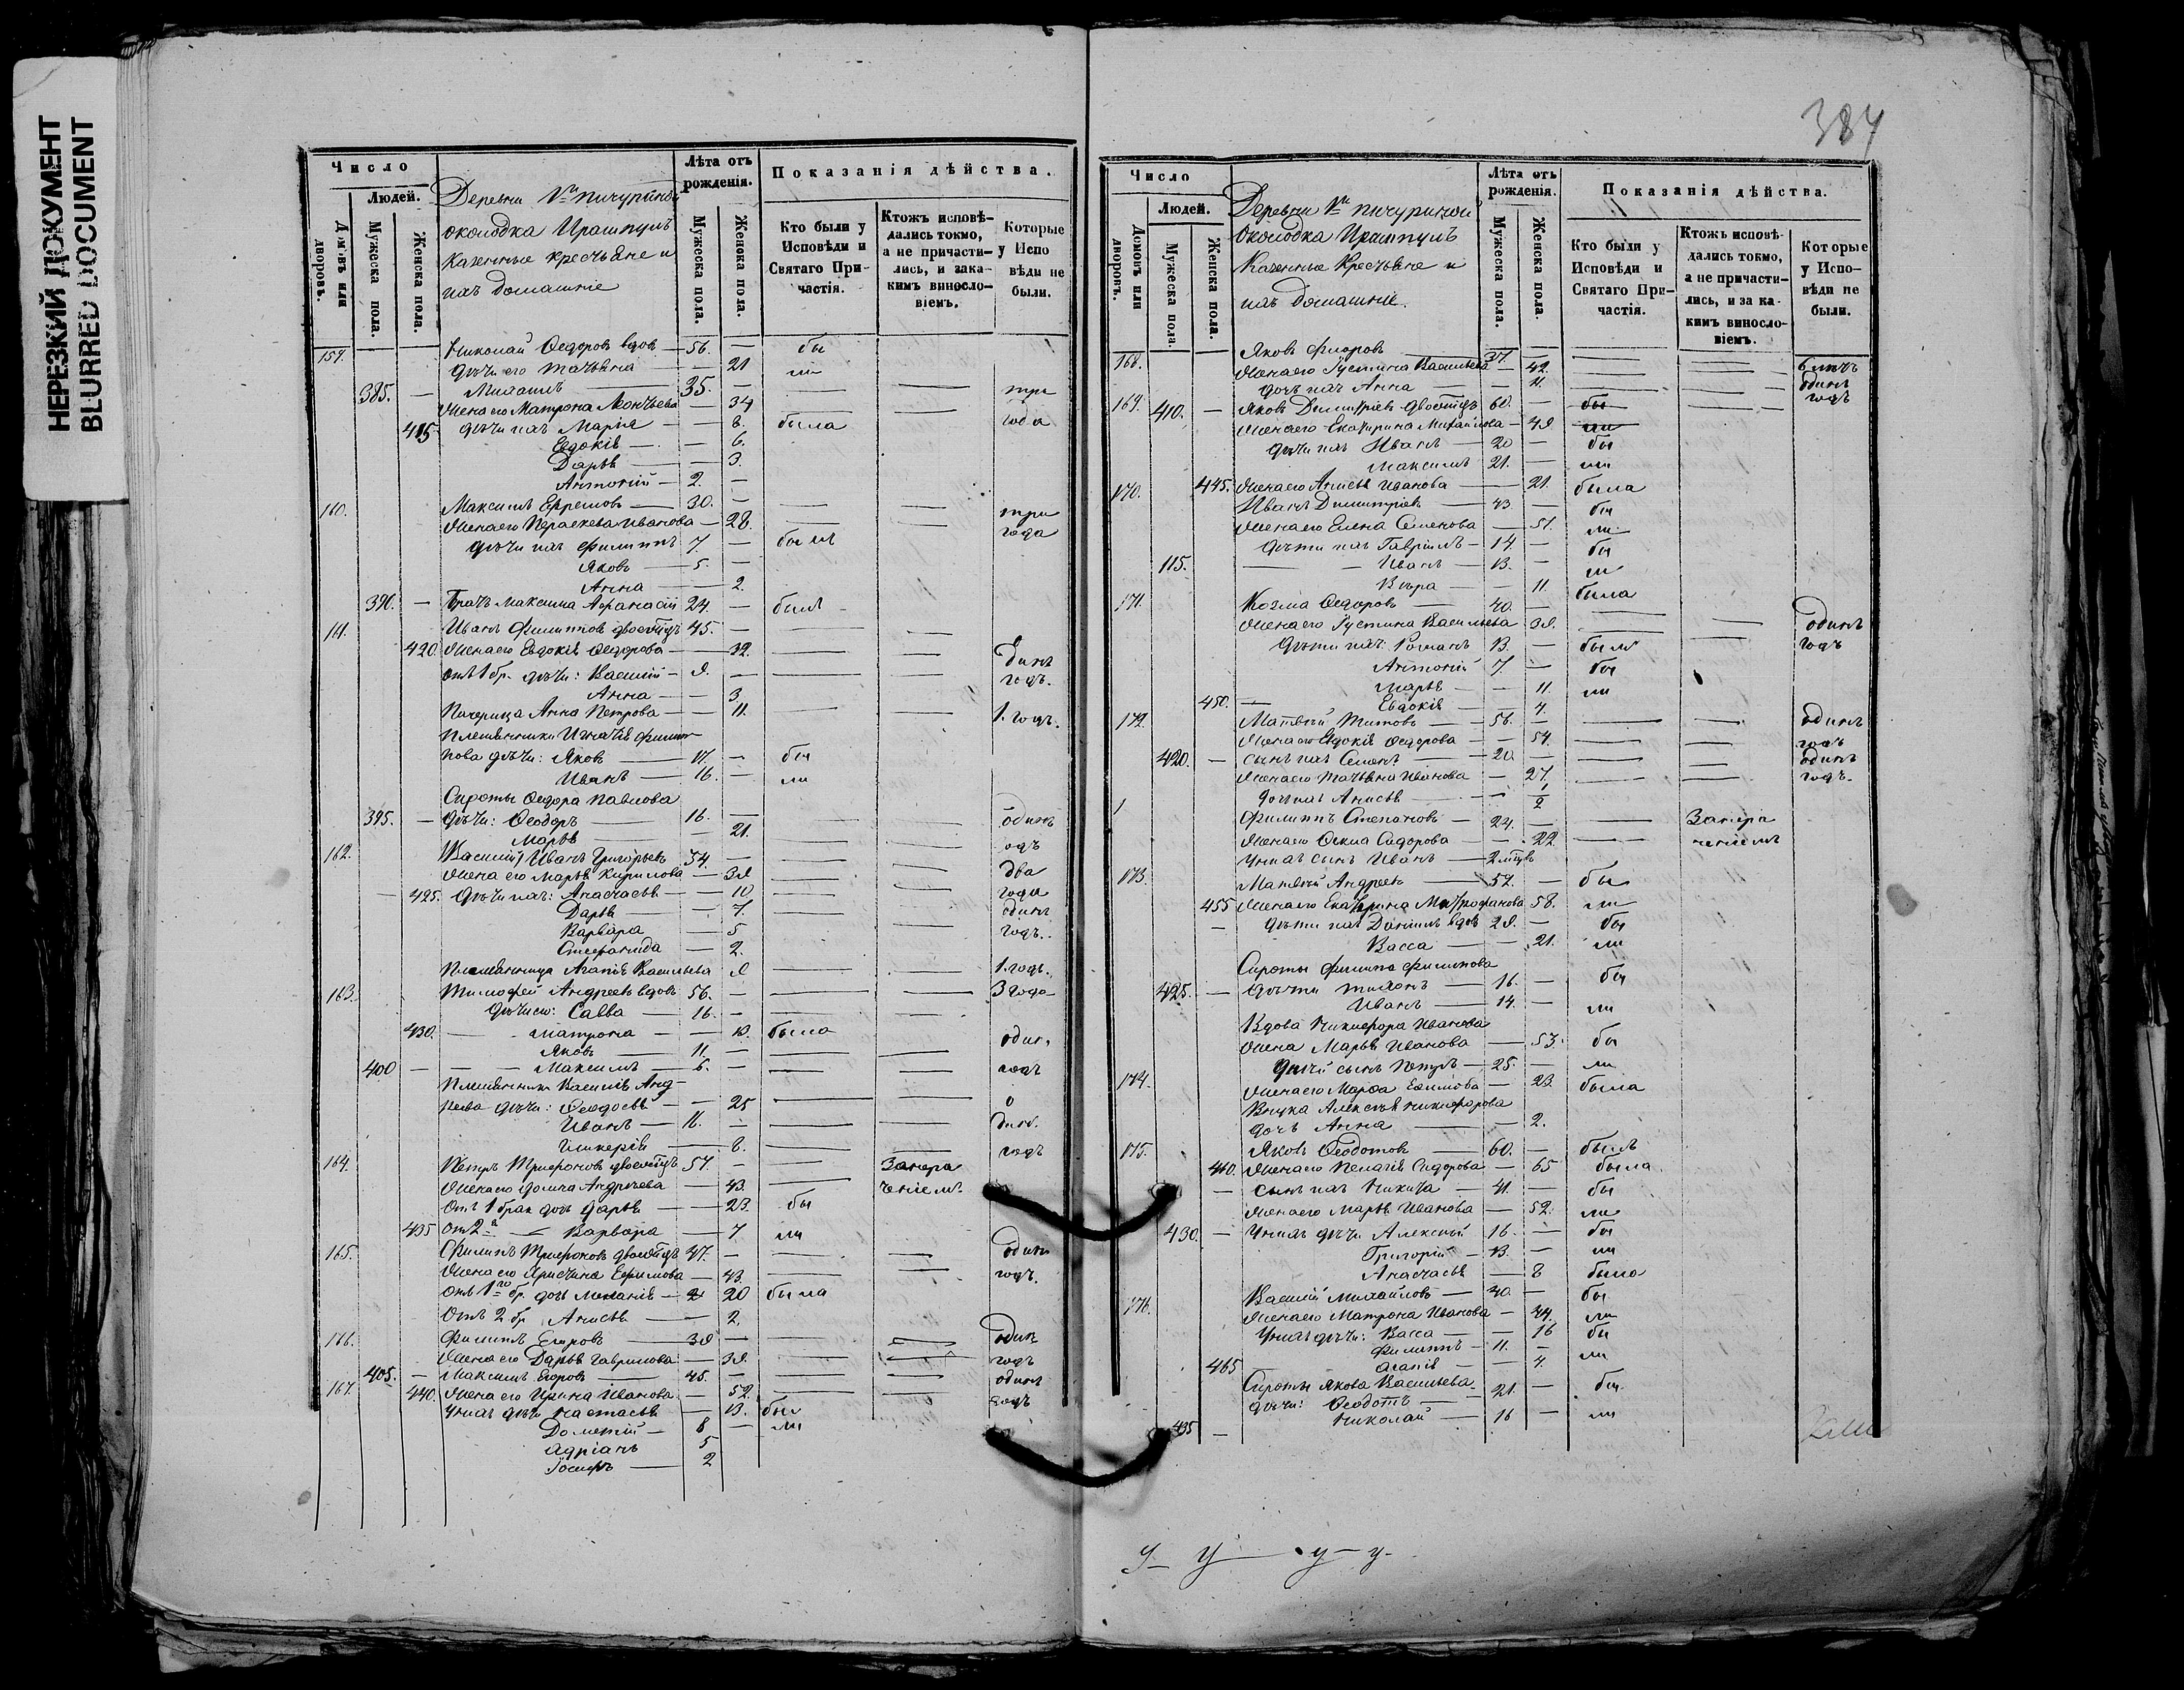 НЕРЕЗКИЙ ДОКУМЕНТ
BLURRED DOCUMENT
Число
Людей.
Домовъ или дворовъ.
Мужеска пола.
Женска пола.
Деревни Vи пичуриной
околодка Ирашпулъ
Казенные крестьяне и
ихъ домашніе
Лѣта отъ рожденія.
Мужеска пола.
Женска пола.
Показанія дѣйства.
Кто были у Исповѣди и Святаго Причастія.
Ктожъ исповѣдались токмо, а не причастились, и за какимъ винословіемъ.
Которые у Исповѣди не были.
159. Николай Ѳедоровъ вдовъ — 56. — бы
дѣти его Татьяна — — 21 ли
385. — Михаилъ — 35. — — три
Жена его Матрона Леонтьева — 34
415 дѣти ихъ Марія — — 8. была года
Евдокія — — 6.
Дарья — — 3.
Антоній — 2. —
160. Максимъ Ефремовъ — 30. — — — три
Жена его Параскева Иванова — 28. — — года
дѣти ихъ Филиппъ 7. — былъ
Яковъ — 5. —
Анна — — 2.
390. — Братъ Максима Афанасій 24. — былъ
161. Иванъ Филиповъ двоеж 45. — —
420. Жена его Евдокія Ѳедорова — 32. — — одинъ
отъ 1 бр. дѣти: Василій — 9. — — годъ.
Анна — — 3.
Анна Петрова — — 11. — — 1. годъ.
Племянники Игнатія Филип
пова дѣти: Яковъ — 17. — бы
Иванъ — 16. — ли
Сироты Ѳедора Павлова
395. — дѣти: Ѳеодоръ — 16. — — одинъ
Марья — — 21. — — одъ
162. Василій Иванъ Григорьевъ 34. — — — два
Жена его Марья Кирилова — 39 — — года
425. дѣти ихъ: Анастасья — — 10 одинъ
Дарья — — 7. годъ.
Варвара — 5
Стефанида — 2.
Племянница Агапія Васильева 9 — — 1. годъ.
163. Тимофей Андреевъ вдовъ 56. — — — 3 года
дѣти его: Савва — 16. — — —
430. — Матрона — — 13. была
Яковъ — 11. — — — один
400 — — — Максимъ — 6. — — — годъ
Племянники Василія Анд
реева дѣти: Ѳеодосья — — 25 — — о
Иванъ — 16. — — — динъ.
Гликерія — 8. — — годъ
164. Петръ Трифоновъ двоеж 57. — — Занера
Жена его Домна Андреева — 43. — ченіемъ
Отъ 1 брак дочь Дарья — — 23. бы
435 от 2а — Варвара — 7. ли
165. Филипъ Трифоновъ двоеж 47. — — одинъ
Жена его Христина Ефимова — 43. — — годъ.
отъ 1го бр. дочь Меланія — 20 была
Отъ 2 бр Анисья — — 2.
166. Филипъ Егоровъ — 39 — — — одинъ
Жена его Дарья Гаврилова — 39. — — годъ
405. — Максимъ Егоровъ — 45. — — — одинъ
167. 440. Жена его Ирина Иванова. — 52. — — годъ
У нихъ дѣти Настасья — 13. бы
Дометій — 8 — ли
Адріанъ 5
Іосифъ — 2
384
Число
Людей.
Домовъ или дворовъ.
Мужеска пола.
Женска пола.
Деревни Vи пичуриной
околодка Ирашпулъ
Казенные Крестьяне и
ихъ домашніе.
Лѣта отъ рожденія.
Мужеска пола.
Женска пола.
Показанія дѣйства.
Кто были у Исповѣди и Святаго Причастія.
Ктожъ исповѣдались токмо, а не причастились, и за какимъ винословіемъ.
Которые у Исповѣди не были.
168. Яковъ Филоровъ — 37. — — — 6 лѣтъ
Жена его Густина Васильева — 42. — — одинъ
дочь ихъ Анна — — 11. — — годъ
169. 410. — Яковъ Димитріевъ двоеж 60. — бы
Жена его Екатерина Михайлова — 49 ли
дѣти ихъ Иванъ — 20 — бы
Максимъ 21. — ли
445. Жена его Анисья Иванова — 21. была
170. Иванъ Димитріевъ — 43 — бы
Жена его Елена Семенова — 51. ли
дѣти ихъ Гавріилъ — 14. — бы
115. — — Иванъ — 13. — ли
Вѣра — — 11. была
171. Козма Ѳедоровъ — 40. — —
Жена его Густина Васильева 39. — — одинъ
дѣти ихъ: Романъ 13. — былъ годъ
Антоній 7. — бы
Марья — — 11. ли
450. — Евдокія — 4.
172. Матвѣй Титовъ — 56. — — — одинъ
Жена его Евдокія Ѳедорова — — 54. — — годъ
420. — Сынъ ихъ Семенъ — 20 — — — одинъ
Жена его Татьяна Иванова — 27. годъ.
Дочь ихъ Анисья — — 1/2
1 Филиппъ Степановъ — 24. — — Занера
Жена его Ѳекла Сидорова — — 22. — ченіемъ
У нихъ сынъ Иванъ — 2 мѣсц
173. Матвѣй Андреевъ — 52. — бы
455 Жена его Екатерина Митрофанова 58. ли
— дѣти ихъ Даніилъ вдовъ 29. — бы
Васса — — 21. ли
Сироты Филипа Филипова
425. — дѣти Тихонъ — 16. — бы
Иванъ — 14. — ли
Вдова Никифора Иванова
Жена Марья Иванова — 53. бы
дѣти сынъ Петръ — 25. — ли
174. Жена его Марфа Ефимова — 23. была
Внука Алексѣя Никифорова
дочь Анна — — 2.
175. Яковъ Ѳеодотовъ — 60. — былъ
460. Жена его Пелагія Сидорова — 65 была
— Сынъ ихъ Никита — 41. — бы
Жена его Марья Иванова — 52. ли
430. — У нихъ дѣти Алексѣй 16. — бы
Григорій — 13. — ли
Анастасья — 8 была
176. Василій Михайловъ — 40. — бы
Жена его Матрона Иванова — 44. ли
У нихъ дѣти: Васса — — 16 бы
Филиппъ — 11. — ли
465 Агапія — — 4.
Сироты Якова Васильева
дѣти: Ѳеодотъ — 21. — бы
435 — Николай — 16 — ли